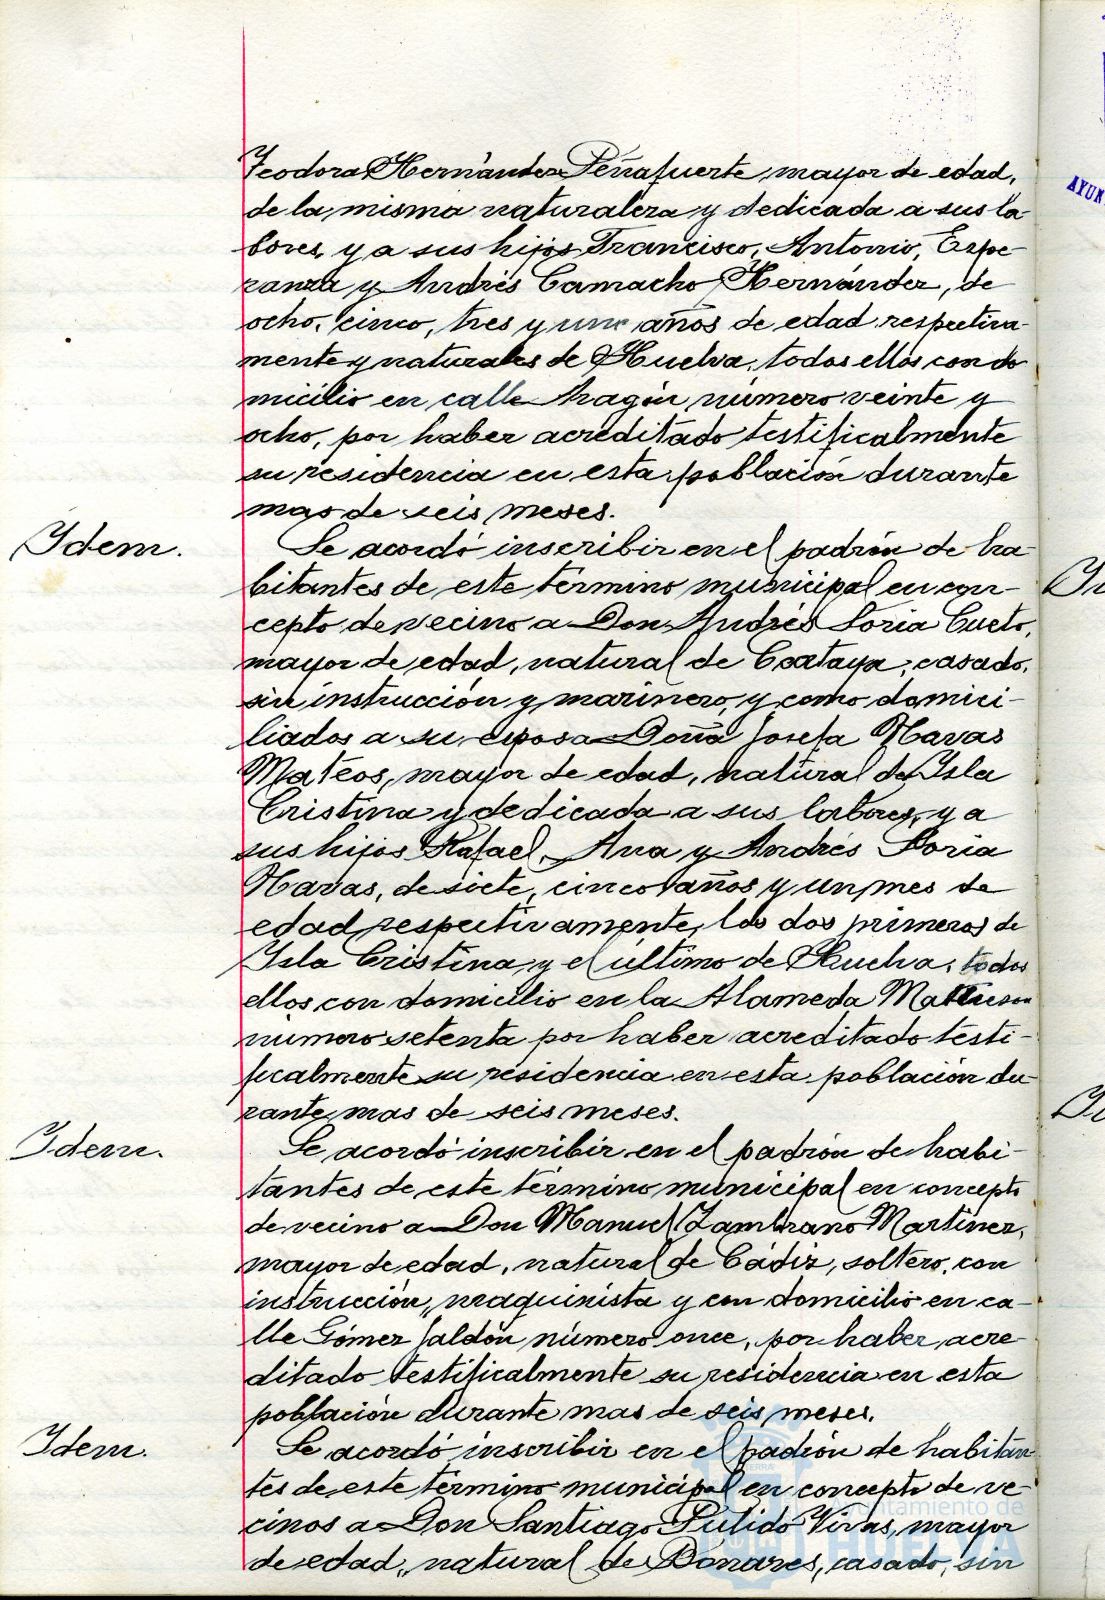 Teodora Hernández Peñafuerte mayor de edad,
de la misma naturaleza y dedicada a sus la-
bores, y a sus hijos Francisco, Antonio, Espe-
ranza y Andrés Camacho Hernández, de
ocho, cinco, tres y un años de edad respectiva-
mente y naturales de Huelva, todos ellos con do
micilio en calle Aragón número veinte y
ocho, por haber acreditado testificalmente
su residencia en esta población durante
mas de seis meses.
Idem.
Se acordó inscribir en el padrón de ha-
bitantes de este término municipal en con-
cepto de vecino a Don Andrés Soria Cueto,
mayor de edad, natural de Cartaya, casado,
sin instrucción y marinero, y como domici-
liados a su esposa Doña Josefa Navas
Mateos, mayor de edad, natural de Isla
Cristina y dedicada a sus labores, y a
sus hijos Rafael, Ana y Andrés Soria
Navas, de siete, cinco años y un mes de
edad respectivamente, los dos primeros de
Isla Cristina y el último de Huelva, todos
ellos con domicilio en la Alameda
número setenta por haber acreditado testi-
ficalmente su residencia en esta población du-
rante mas de seis meses.
Idem.
Se acordó inscribir en el padrón de habi-
tantes de este término municipal en concepto
de vecino a Don Manuel Zambrano Martinez,
mayor de edad, natural de Cádiz, soltero, con
instrucción, maquinista y con domicilio en ca-
lle Gómez Jaldón número once, por haber acre-
ditado testificalmente su residencia en esta
población durante mas de seis meses.
Idem.
Se acordó inscribir en el padrón de habitan-
tes de este término municipal en concepto de ve-
cinos a Don Santiago Pulido Vivas, mayor
de edad, natural de Bonares, casado, sin
Ayuntamiento de
HUELVA
AYUN